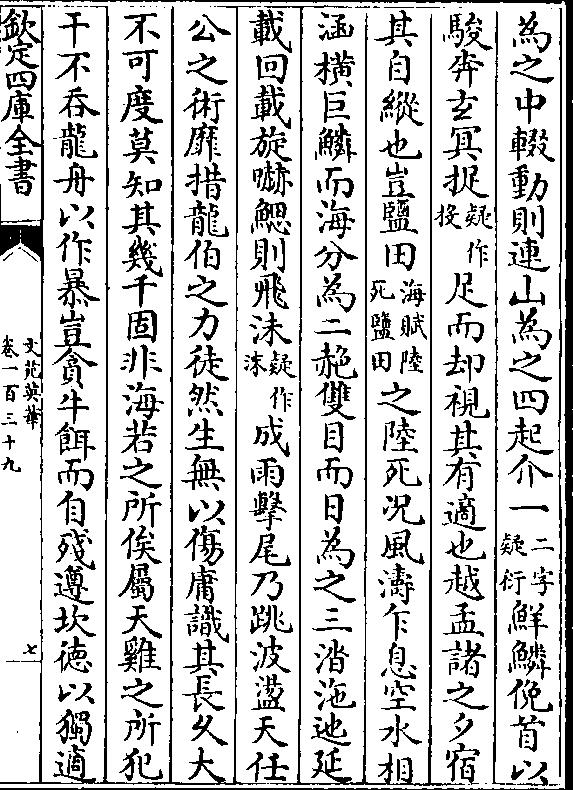 為之中輟動則連山為之四起介一二字疑衍鮮鱗俛首以
駿奔玄冥捉疑作投足而却視其有適也越孟諸之夕宿
其自縱也豈鹽田海賦陸死鹽田之陸死况風濤乍息空水相
涵橫巨鱗而海分為二赩雙目而日為之三沿沲迆延
載回載旋嚇鰓則飛沫疑作沫成雨擊尾乃跳波盪天任
公之術靡措龍伯之力徒然生無以傷庸識其長夂大
不可度莫知其幾千固非海若之所俟屬天雞之所犯
干不吞龍舟以作暴豈貪牛餌而自殘遵坎徳以獨適
欽定四庫全書
文苑英華
卷一百三十九
七